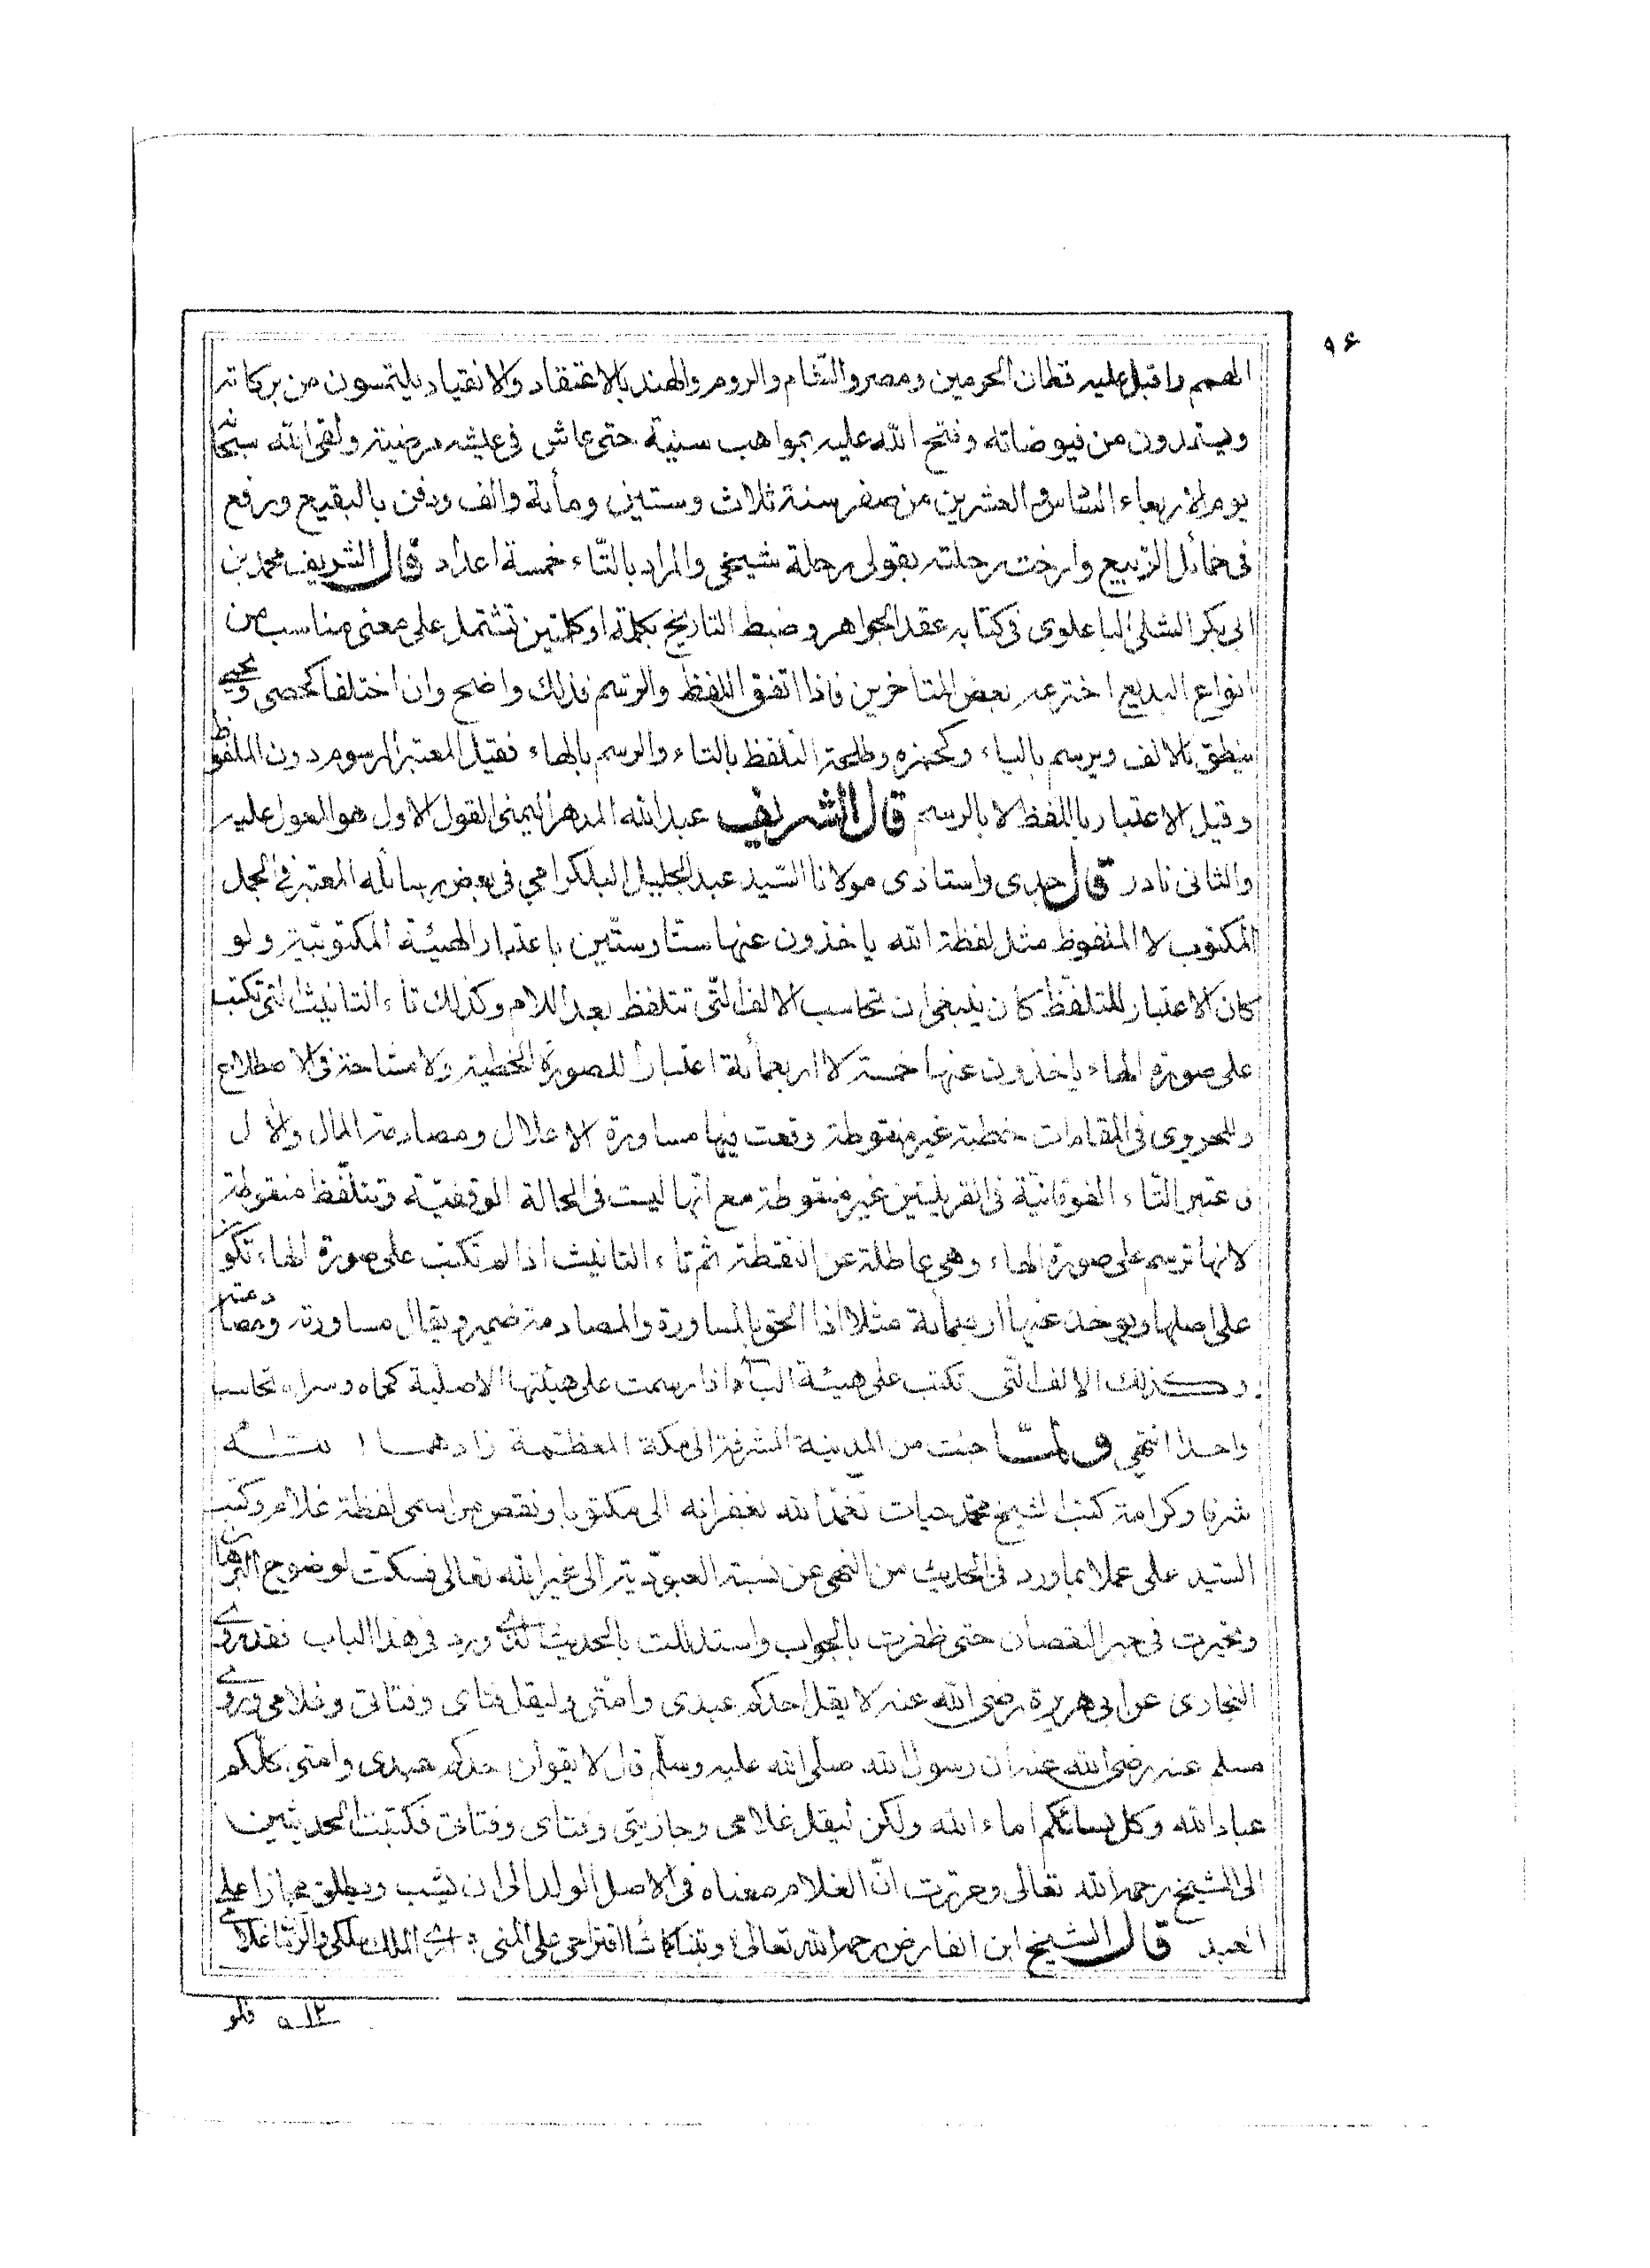 ٩٤
الهمم واقبل عليه قطان الحرمين ومصر والشّام والروم والهند بالاعتقاد والانقياد يلتمسون من بركاته
ويستمدون من فيوضاته وفتح الله عليه بمواهب سنية حتى عاش فى عيشه مرضية ولقى الله سبحانه
يوم الاربعاء السادس والعشرين من صفر سنة ثلاث وستين ومأئة والف ودفن بالبقيع ورفع
فى خمائل الربيع وارخت رحلته بقولى رحلة شيخى والمراد بالتّاء خمسة اعداد قال الشريف محمد بن
ابى بكر الشلى الباعلوى فى كتابه عقد الجواهر وضبط التاريخ بكلمة او كلمتين تشتمل على معنى مناسب من
انواع البديع اخترعه بعض المتاخرين فاذا اتفق اللفظ والرسم فذلك واضح وان اختلفا كحصى ويحيى
ينطق بالالف ويرسم بالياء وكحمزه وطلحة التلفظ بالتاء والرسم بالهاء فقيل المعتبر المرسوم دون الملفوظ
وقيل الاعتبار باللفظ لا بالرسم قال الشريف عبد الله المدهر اليمنى القول الاول هو المعول عليه
والثانى نادر قال جدى واستاذى مولانا السّيد عبد الجليل البلكرامى فى بعض رسائله المعتبر فى الجمل
المكتوب لا الملفوظ مثل لفظة الله ياخذون عنها ستّا وستّين باعتبار الهيئة المكتوبيّة ولو
كان الاعتبار للمتلفّظ كان ينبغى ان تحاسب الالف الّتى تتلفظ بعد اللام وكذلك تاء التانيث التى تكتب
على صورة الهاء ياخذون عنها خمسة لا اربعمأئة اعتبارا للصورة الخطية ولا مشاحة فى الاصطلاح
وللحريرى فى المقامات خطبة غير منقوطة وقعت فيها مساورة الاعلال ومصارمة المال والأل
فاعتبر التّاء الفوقانيّة فى القرينتين غير منقوطة مع انّها ليست فى الحالة الوقفيّة وتتلفّظ منقوطة
لانها ترسم على صورة الهاء وهى عاطلة عن النقطة ثم تاء التانيث اذا لم تكتب على صورة الهاء تكون
على اصلها ويوخذ عنها اربعمأئة مثلا اذا الحق بالمساورة والمصادمة ضمير ويقال مساورته ومصادمته
وكذلك الالف الّتى تكتب على هيئة الياء اذا رسمت على هيئتها الاصلية كحماه وسراه تحاسب
واحدا انتهى ولمّا جئت من المدينة المشرفة الى مكة المعظمة زادهما الله
شرفا وكرامة كتب الشيخ محمد حيات تغمّده الله بغفرانه الى مكتوبا ونقص من اسمى لفظة غلام وكتب
السّيد على عملا بما ورد فى الحديث من النهى عن نسبة العبوديّة الى غير الله تعالى فسكت لوضوح البرهان
وتحيرت فى جبر النقصان حتى ظفرت بالجواب واستدللت بالحديث الّذى ورد فى هذا الباب فقد روى
البخارى عن ابى هريرة رضى الله عنه لا يقل احدكم عبدى وامتى وليقل فتاى وفتاتى وغلامى وروى
مسلم عنه رضى الله عنه ان رسول الله صلّى الله عليه وسلّم قال لا يقولن احدكم عبدى وامتى كلّكم
عباد الله وكل نسائكم اماء الله ولكن ليقل غلامى وجاريتى وفتاى وفتاتى فكتبت الحديثين
الى الشيخ رحمه الله تعالى وحررت انّ الغلام معناه فى الاصل الولد الى ان يشب ويطلق مجازا على
العبد قال الشيخ ابن الفارض رحمه الله تعالى وبتنا كما شاء اقتراحى على المنى الملك ملكى والزمان غلامى
فلو